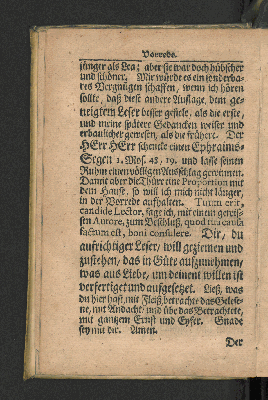 Vorrede.
jünger als Lea; aber sie war doch hübscher
und schöner. Mir würde es ein sonderba-
res Vergnügen schaffen, wenn ich hören
sollte, daß diese andere Auflage, dem ge-
neigtem Leser besser gefiele, als die erste,
und meine spätere Gedancken weiser und
erbaulicher gewesen, als die frühere. Der
HErr HErr schencke einen Ephraims-
Segen 1. Mos. 48, 19. und lasse seinen
Ruhm einen völligen Ausschlag gewinnen.
Damit aber die Thür eine Proportion mit
dem Hause, so will ich mich nicht länger,
in der Vorrede aufhalten. Tuum erit,
candide Lector, sage ich, mit einem gewis-
sen Autore, zum Beschluß, quod tua causa
factum est, boni consulere. Dir, du
aufrichtiger Leser, will geziemen und
zustehen, das in Güte aufzunehmen,
was aus Liebe, um deinent willen ist
verfertiget und aufgesetzt. Ließ, was
du hier hast, mit Fleiß, betrachte das Gelese-
ne, mit Andacht, und übe das Betrachtete,
mit gantzem Ernst und Eyfer. Gnade
sey mit dir. Amen.
Der